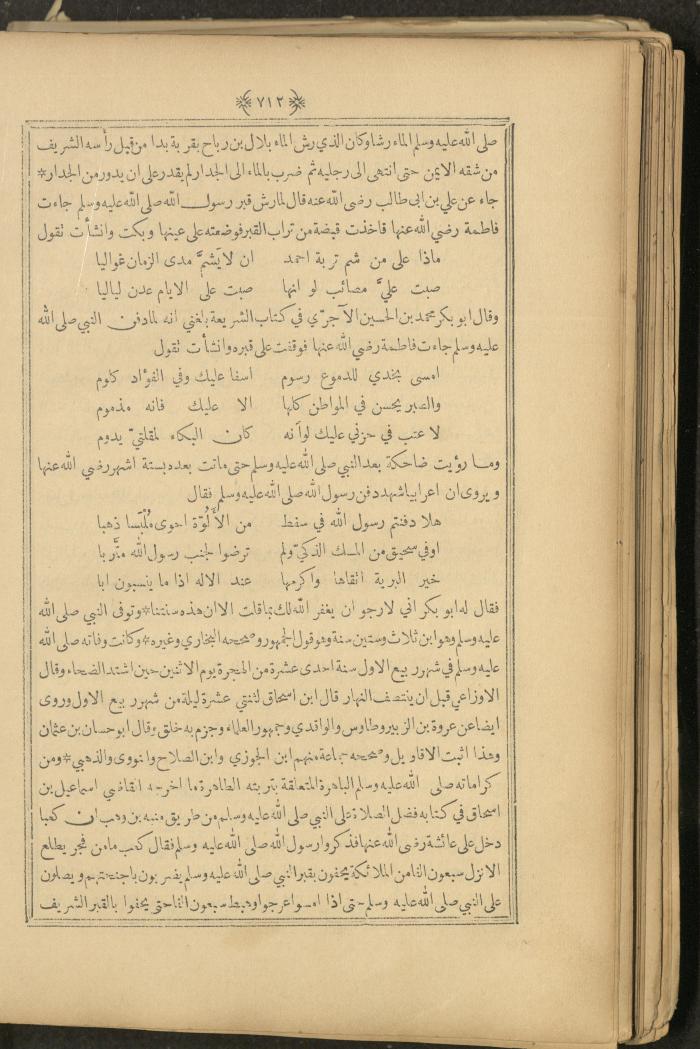 ﴿٧١٢﴾
صلى الله عليه وسلم الماء رشا وكان الذي رش الماء بلال بن رباح بقربة بدا من قبل رأسه الشريف
من شقه الايمن حتى انتهى الى رجليه ثم ضرب بالماء الى الجدار لم يقدر على ان يدور من الجدار*
جاء عن علي بن ابى طالب رضى الله عنه قال لما رش قبر رسول الله صلى الله عليه وسلم جاءت
فاطمة رضي الله عنها فاخذت قبضة من تراب القبر فوضعته على عينها وبكت وانشأت تقول
ماذا على من شم تربة احمد ان لا يَشمَّ مدى الزمان غواليا
صبت عليَّ مصائب لو انها صبت على الايام عدن لياليا
وقال ابو بكر محمد بن الحسين الآجرّي في كتاب الشريعة بلغني انه لما دفن النبي صلى الله
عليه وسلم جاءت فاطمة رضي الله عنها فوقفت على قبره وانشأت تقول
امسى بخدي للدموع رسوم اسفا عليك وفي الفؤاد كلوم
والصبر يحسن في المواطن كلها الا عليك فانه مذموم
لا عتب في حزني عليك لوآنه كان البكاء لمقلتيّ يدوم
وما رؤيت ضاحكة بعد النبي صلى الله عليه وسلم حتى ماتت بعده بستة اشهر رضي الله عنها
ويروى ان اعرابيا شهد دفن رسول الله صلى الله عليه وسلم فقال
هلا دفنتم رسول الله في سفط من الأَلُوّة احوى مُلْبَسا ذهبا
اوفي سحيق من المسك الذكيّ ولم ترضوا لجنب رسول الله متَّربا
خير البرية اتقاها واكرمها عند الاله اذا ما ينسبون ابا
فقال له ابو بكر اني لارجو ان يغفر الله لك بما قلت الا ان هذه سنتنا*وتوفى النبي صلى الله
عليه وسلم وهو ابن ثلاث وستين سنة وهو قول الجمهور وصححه البخاري وغيره*وكانت وفاته صلى الله
عليه وسلم في شهر ربيع الاول سنة احدى عشرة من الهجرة يوم الاثنين حين اشتد الضحاء وقال
الاوزاعي قبل ان ينتصف النهار قال ابن اسحاق لثنتي عشرة ليلة من شهر ربيع الاول وروى
ايضا عن عروة بن الزبير وطاوس والواقدي وجمهور العلماء وجزم به خلق وقال ابو حسان بن عثمان
وهذا اثبت الاقاويل وصححه جماعة منهم ابن الجوزي وابن الصلاح والنووى والذهبي*ومن
كراماته صلى الله عليه وسلم الباهرة المتعلقة بتربته الطاهرة ما اخرجه القاضي اسماعيل بن
اسحاق في كتابه فضل الصلاة على النبي صلى الله عليه وسلم من طريق منبه بن وهب ان كعبا
دخل على عائشة رضى الله عنها فذكروا رسول الله صلى الله عليه وسلم فقال كعب ما من فجر يطلع
الا نزل سبعون الفا من الملائكة يحفون بقبر النبي صلى الله عليه وسلم يضربون باجنحتهم ويصلون
على النبي صلى الله عليه وسلم حتى اذا امسوا عرجوا وهبط سبعون الفا حتى يحفوا بالقبر الشريف